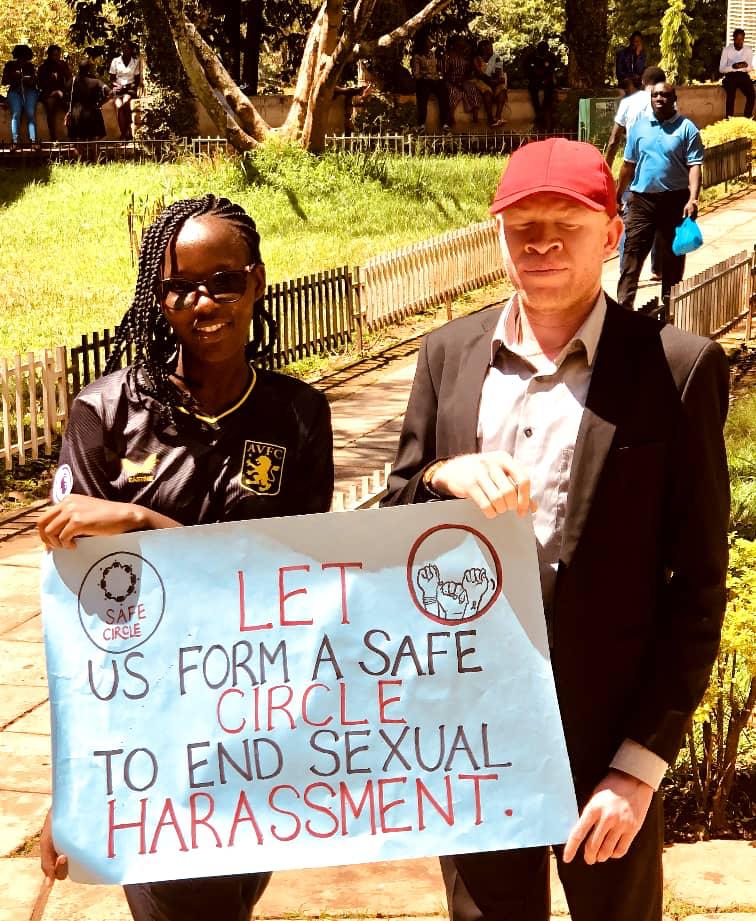 AVFC
CASTORE
SAFE
CIRCLE
LET
US FORM A SAFE
CIRCLE
TO END SEXUAL
HARASSMENT.